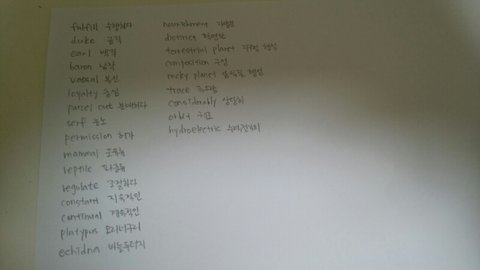 fulfill 수행하다
duke 공작
earl 백작
baron 남작
vassal 봉신
loyalty 충성
parcel out 분배하다
serf 농노
permission 허가
mammal 포유류
reptile 파충류
regulate 조절하다
constant 지속적인
continual 계속적인
platypus 오리너구리
echidna 바늘두더지
nourishment
district
terrestrial planet 지구형 행성
composition 구성
rocky planet 암석질 행성
trace
considerably 상당히
orbit 궤도
hydroelectric 수력전기의